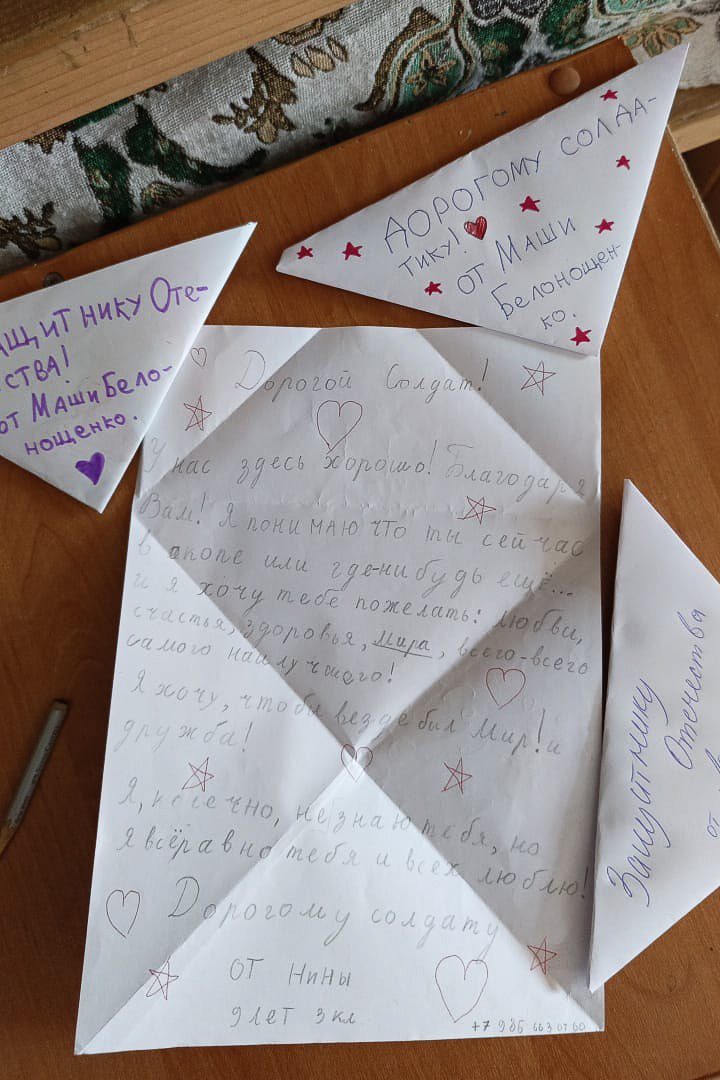 ДОРОГОМУ СОЛДА-
ТИКУ!
ОТ МАШИ
БЕЛОНОЩЕН-
КО.
АЩИТНИКУ ОТЕ-
СТВА!
от Маши Бело-
нощенко.
Дорогой Солдат!
У нас здесь хорошо! Благодаря
Вам! Я понимаю что ты сейчас
в окопе или где-нибудь ещё...
и я хочу тебе пожелать: любви,
счастья, здоровья, мира, всего-всего
самого наилучшего!
Я хочу, чтобы везде был Мир! и
дружба!
Я, конечно, не знаю тебя, но
я всёравно тебя и всех люблю!
Дорогому солдату
от Нины
9 лет 3 кл
+7 985 663 07 60
Защитнику
Отечества
от